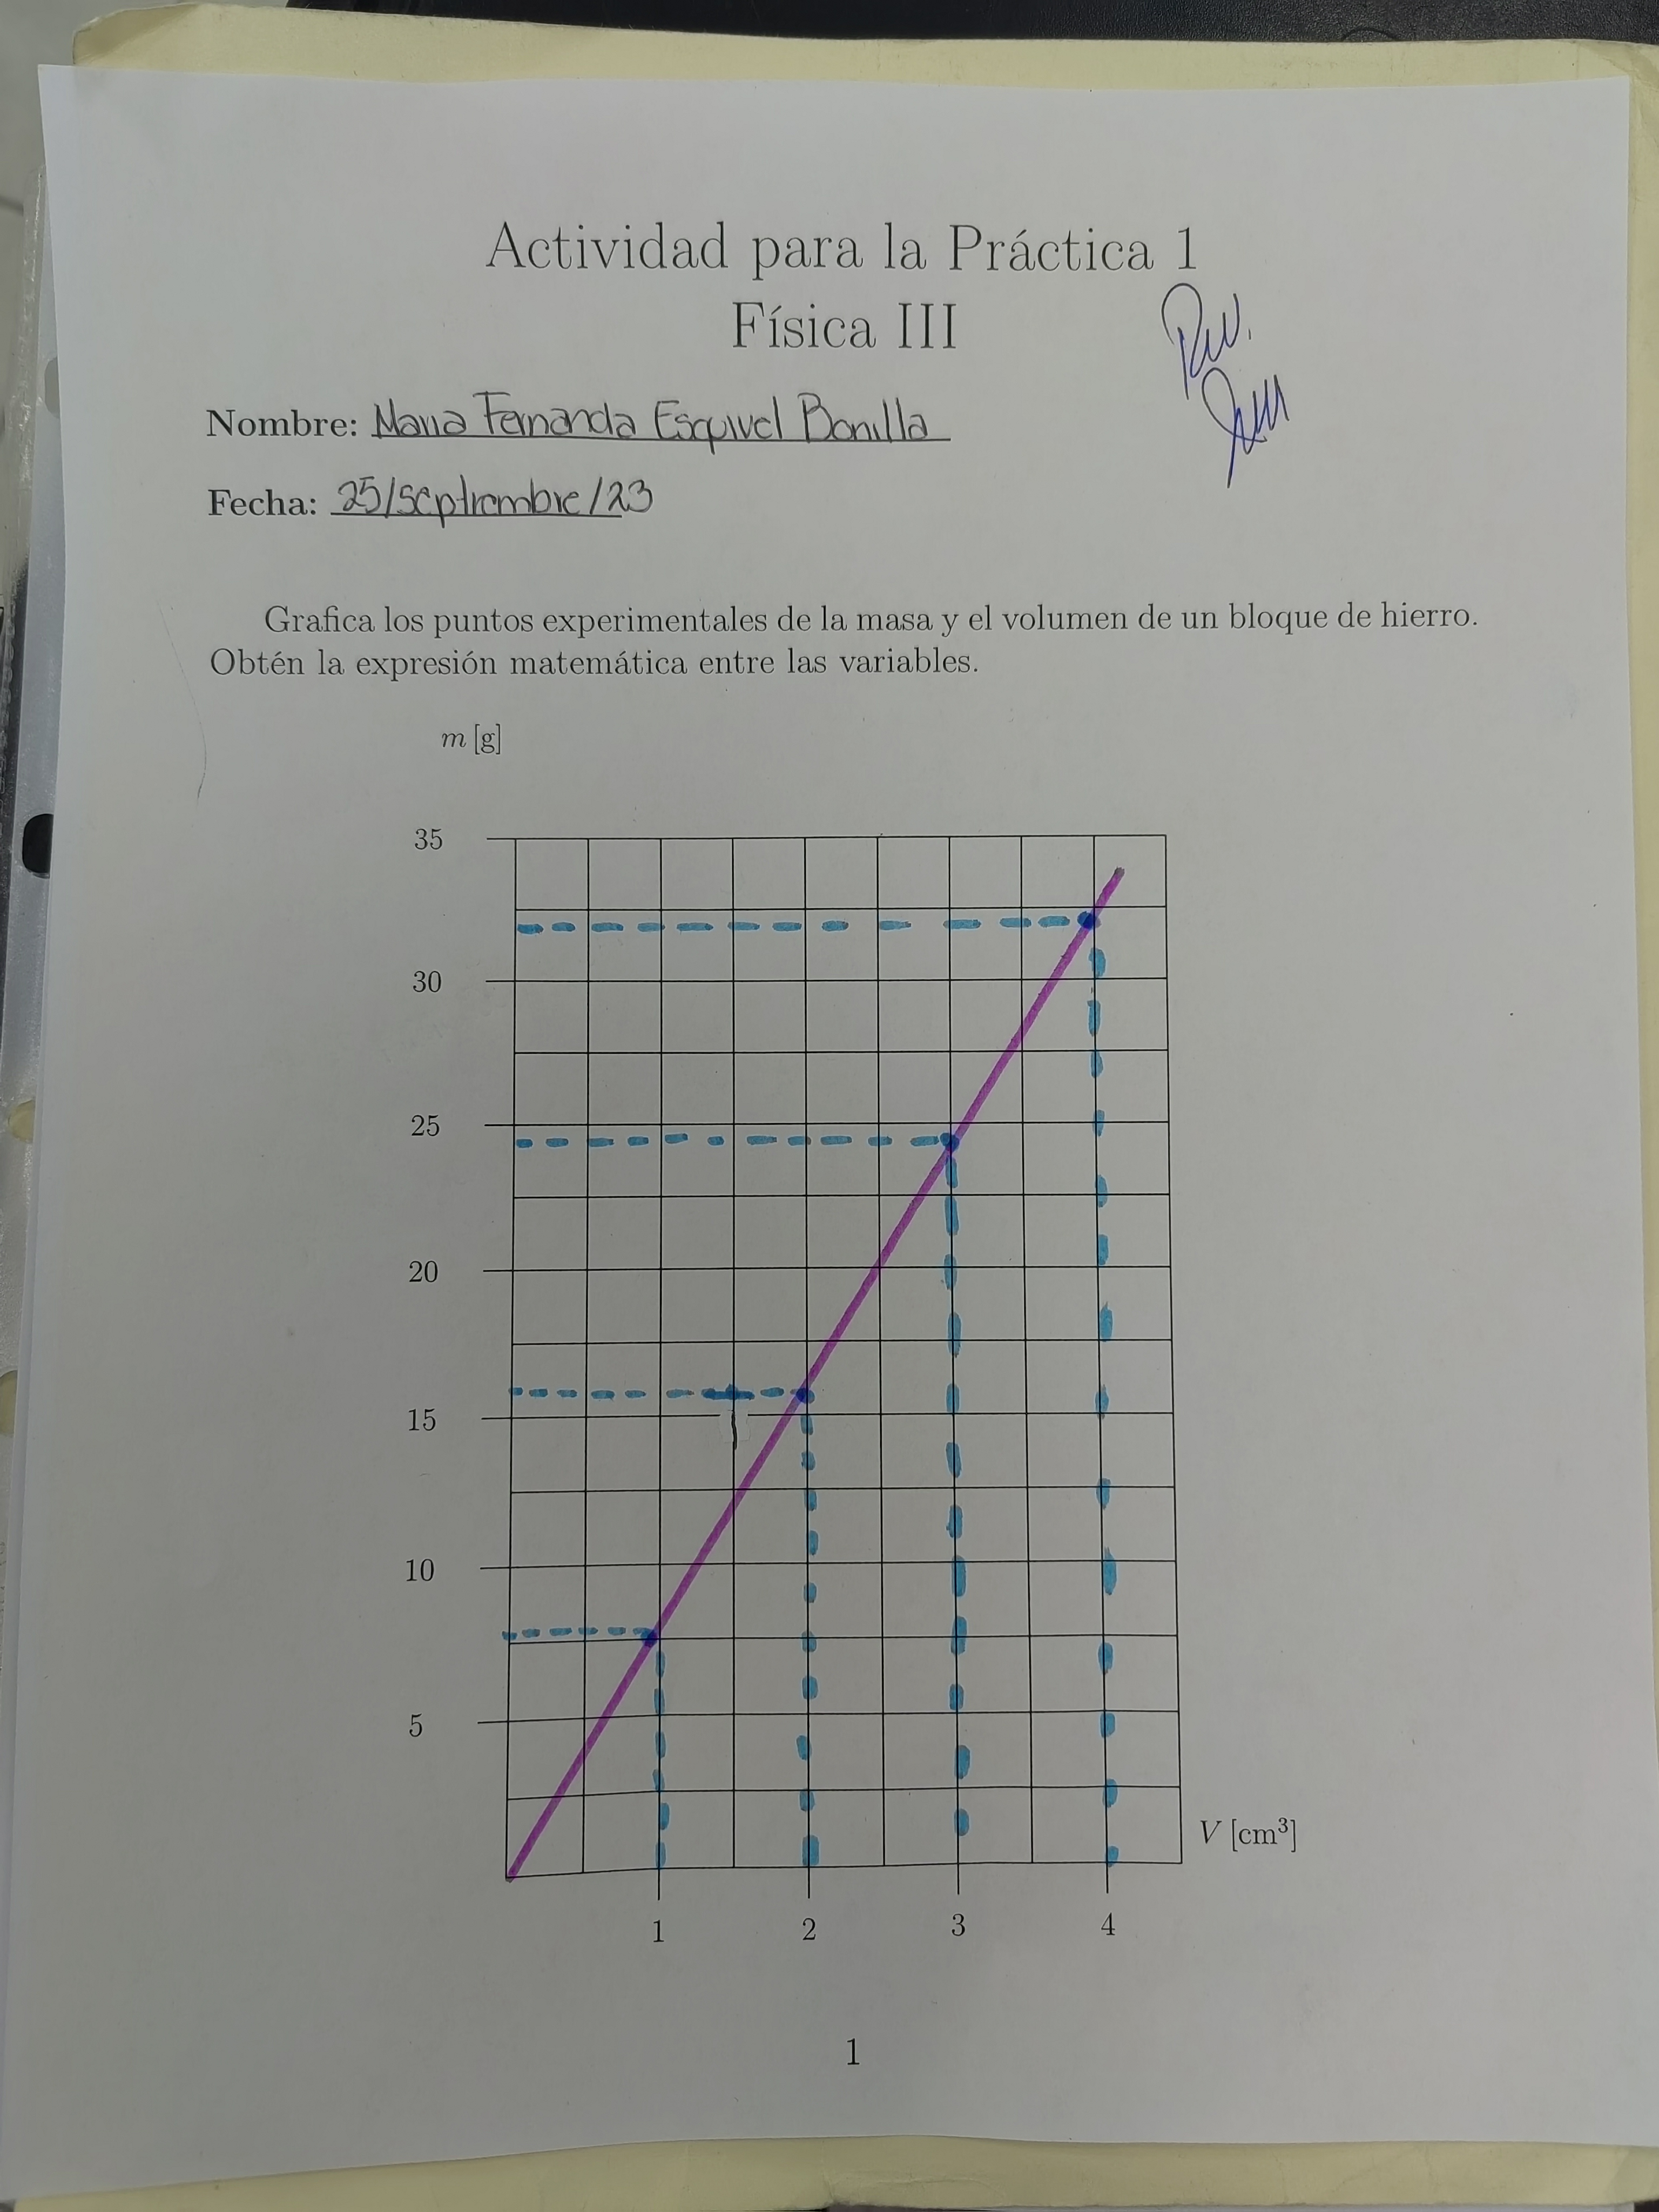 Actividad para la Práctica 1
Física III
Rev.
Nombre: Maria Fernanda Esquivel Bonilla
Fecha: 25/septiembre/23
Grafica los puntos experimentales de la masa y el volumen de un bloque de hierro.
Obtén la expresión matemática entre las variables.
m [g]
35
30
25
20
15
10
5
V [cm³]
1 2 3 4
1